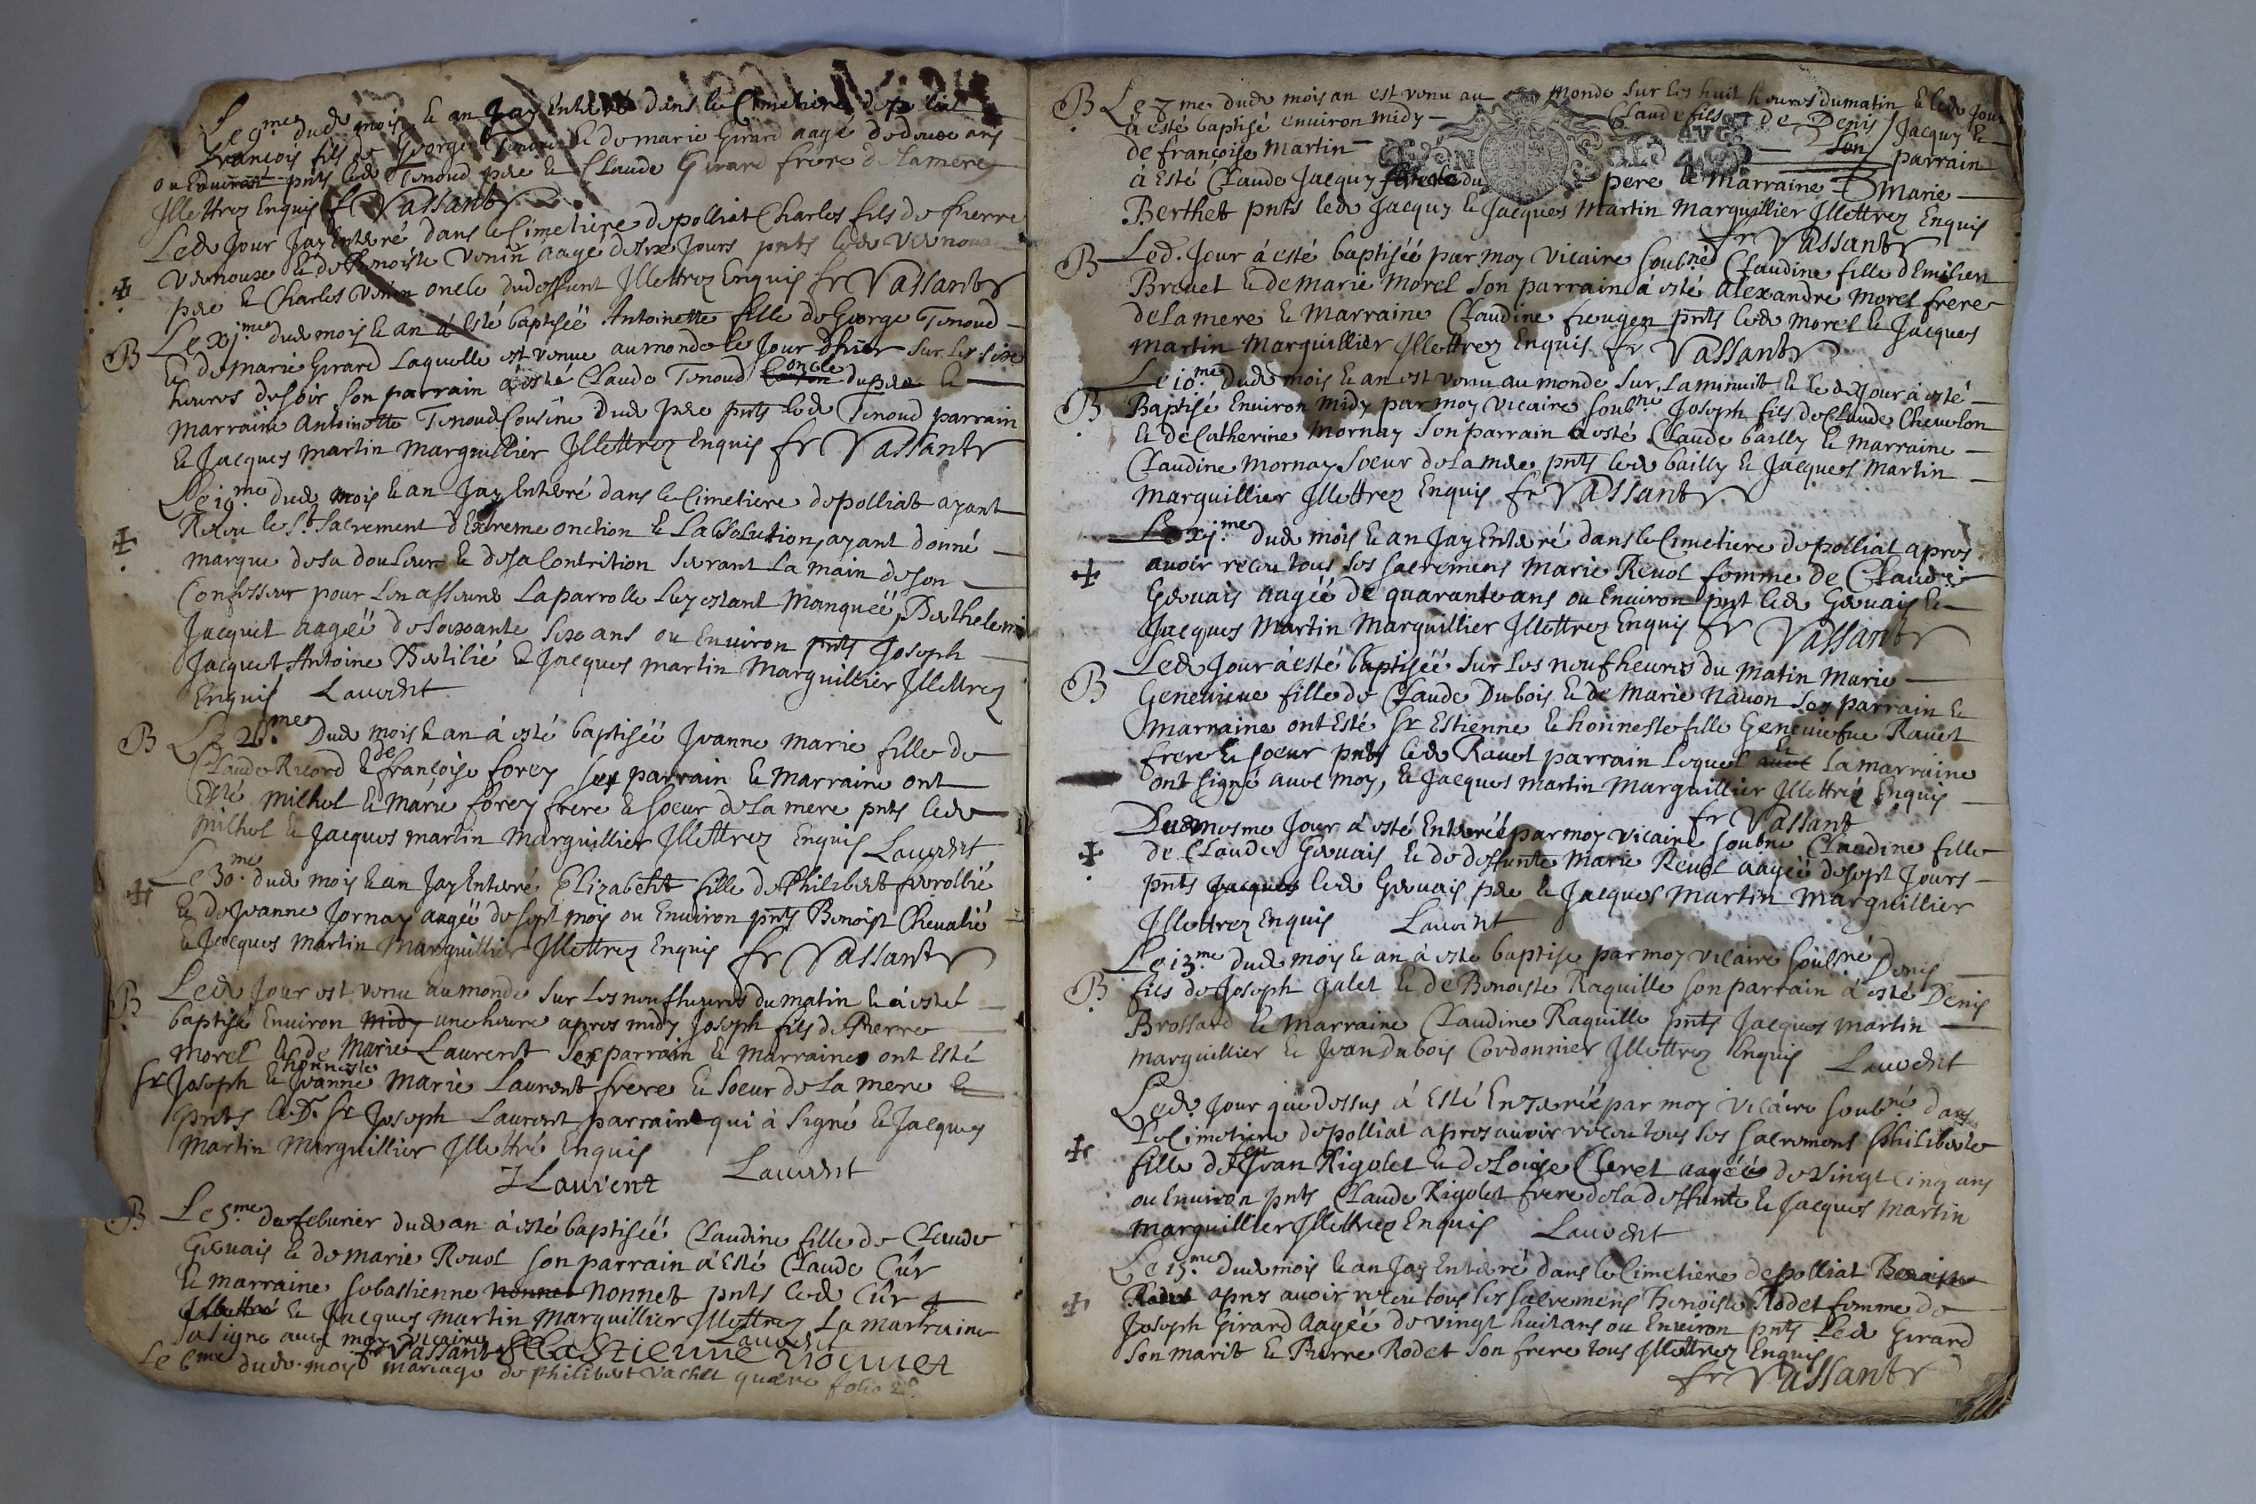 Le 9.me dud. mois & an Jay Enterré dans le Cimetiere de polliat
francois fils de George Tenoud & de marie Girard aagé de douze ans
ou Environ pnts led. Tenoud pere & Claude Girard frere de la mere
Jllettrez Enquis fr Vassant
Led. Jour Jay Enterré dans le Cimetiere de polliat Charles fils de pierre
Vernoux & de Benoiste Venin aagé de six Jours pnts led. Vernoux
pere & Charles Venin oncle dud deffunt Jllettrez Enquis fr Vassant
B Le xj.me dud. mois & an á Esté baptiséé Antoinette fille de George Tenoud
& de marie Girard Laquelle est venue au monde le Jour dhier sur les size
heures de soir son parrain á esté Claude Tenoud oncle du pere &
marraine Antoinette Tenoud Cousine dud. pere pnts led. Tenoud parrain
& Jacques martin marguillier Jllettrez Enquis fr Vassant
Le 19.me dud. mois & an Jay Enterré dans le Cimetiere de polliat ayant
Receu le St. Sacrement d'Extreme onction & Labsolution, ayant donné
marque de sa douleur & de sa Contrition serrant La main de son
Confesseur pour Len asseurer La parrolle luy estant manquéé, Berthelemi
Jacquet aagéé de soixante size ans ou Environ pnts Joseph
Jacquet, Antoine & Jacques martin Marguillier Jllettrez
Enquis Laurent
B Le dud. mois & an á esté baptiséé Jeanne marie fille de
Claude Ricord & de françoise forey ses parrain & Marraine ont
Esté michel & marie forey frere & soeur de la mere pnts led.
michel & Jacques martin Marguillier Jllettrez Enquis Laurent
Le 30.me dud. mois & an Jay Enterré Elizabeht fille de Philibert
& de Jeanne Jornay aagéé de sept mois ou Environ pnts Benoist Chevalié
& Jacques martin Marguillier Jllettrez Enquis fr Vassant
B Led. Jour est venu au monde sur les neuf heures du matin & á esté
baptisé Environ midy une heure apres midy Joseph fils de Pierre
morel & de marie Laurent Ses parrain & Marraine ont Esté
Sr. Joseph & honneste Jeanne Marie Laurent frere & soeur de la mere &
pnts le D. Sr Joseph Laurent parrain qui à signé & Jacques
martin marguillier Jllettré Enquis
J Laurent Laurent
B Le 5.me de feburier dud. an á esté baptiséé Claudine fille de Claude
Gervais & de marie Revol son parrain á Esté Claude Cûr
& marraine sebastienne nonnet Nonnet pnts led. Cûr
Jllettré & Jacques martin Marguillier Jllettrez La marraine
a signé avec moy vicaire Laurent
fr Vassant Sebastienne nonnet
Le 6.me dud. mois mariage de philibert Vachet quaere folio
B Le 7.me dud. mois an est venu au monde sur les huit heures du matin & led. Jour
à esté baptisé environ midy Claude fils de Denis Jacquy &
de françoise Martin Son parrain
á Esté Claude Jacquy du pere & Marraine Marie
Berthet pnts led. Jacquy & Jacques Martin Marguillier Jllettrez Enquis
fr Vassant
B Led. Jour á esté baptiséé par moy Vicaire Soubné Claudine fille d'Emilien
Brevet & de marie Morel son parrain á esté Alexandre morel frere
de la mere & Marraine Claudine pnts led. Morel & Jacques
martin Marguillier Jllettrez Enquis fr Vassant
B Le 10.me dud. mois & an est venu au monde sur La minuit & led. Jour á esté
Baptisé Environ midy par moy vicaire soubné Joseph fils de Claude Chevolon
& de Catherine Mornay son parrain á esté Claude bailly & marraine
Claudine mornay soeur de la mere pnts led. bailly & Jacques martin
marguillier Jllettrez Enquis fr Vassant
Le xj.me dud. mois & an Jay Enterré dans le Cimetiere de polliat apres
avoir receu tous ses sacremens Marie Revol femme de Claude
Gervais aagéé de quarante ans ou Environ pnt led. Gervais &
Jacques Martin Marguillier Jllettrez Enquis fr Vassant
B Led. Jour á esté baptiséé sur les neuf heures du Matin Marie
Genevieve fille de Claude Dubois & de Marie Navon Ses parrain &
Marraine ont Esté Sr. Estienne & honneste fille Genevieve Ravet
frere & soeur pnts led. Ravet parrain Lequel & La marraine
ont signé avec moy, & Jacques martin Marguillier Jllettré Enquis
fr Vassant
Dud. mesme Jour á esté Enterréé par moy vicaire soubné Claudine fille
de Claude Gervais & de deffunte Marie Revol aagéé de sept Jours
pnts Jacques led. Gervais pere & Jacques Martin Marguillier
Jllettrez Enquis Laurent
B Le 13.me dud. mois & an á esté baptisé par moy vicaire soubné Denis
fils de Joseph galet & de Benoiste Raquille son parrain á esté Denis
Brossard & Marraine Claudine Raquille pnts Jacques martin
marguillier & Jean Dubois Cordonnier Jllettrez Enquis Laurent
Led. Jour que dessus á Esté Enterréé par moy Vicaire soubné dans
Le Cimetiere de polliat apres avoir receu tous ses sacremens Philiberte
fille de feu Jean Rigolet & de Loise Cleret aagéé de vingt cinq ans
ou Environ pnts Claude Rigolet frere de la deffunte & Jacques martin
marguillier Jllettrez Enquis Laurent
Le 15.me dud. mois & an Jay Enterré dans le Cimetiere de polliat Benoiste
Rodet apres avoir receu tous ses sacremens Benoiste Rodet femme de
Joseph Girard Aagéé de vingt huit ans ou Environ pnts Led. Girard
son marit & Pierre Rodet son frere tous Jllettrez Enquis
fr Vassant